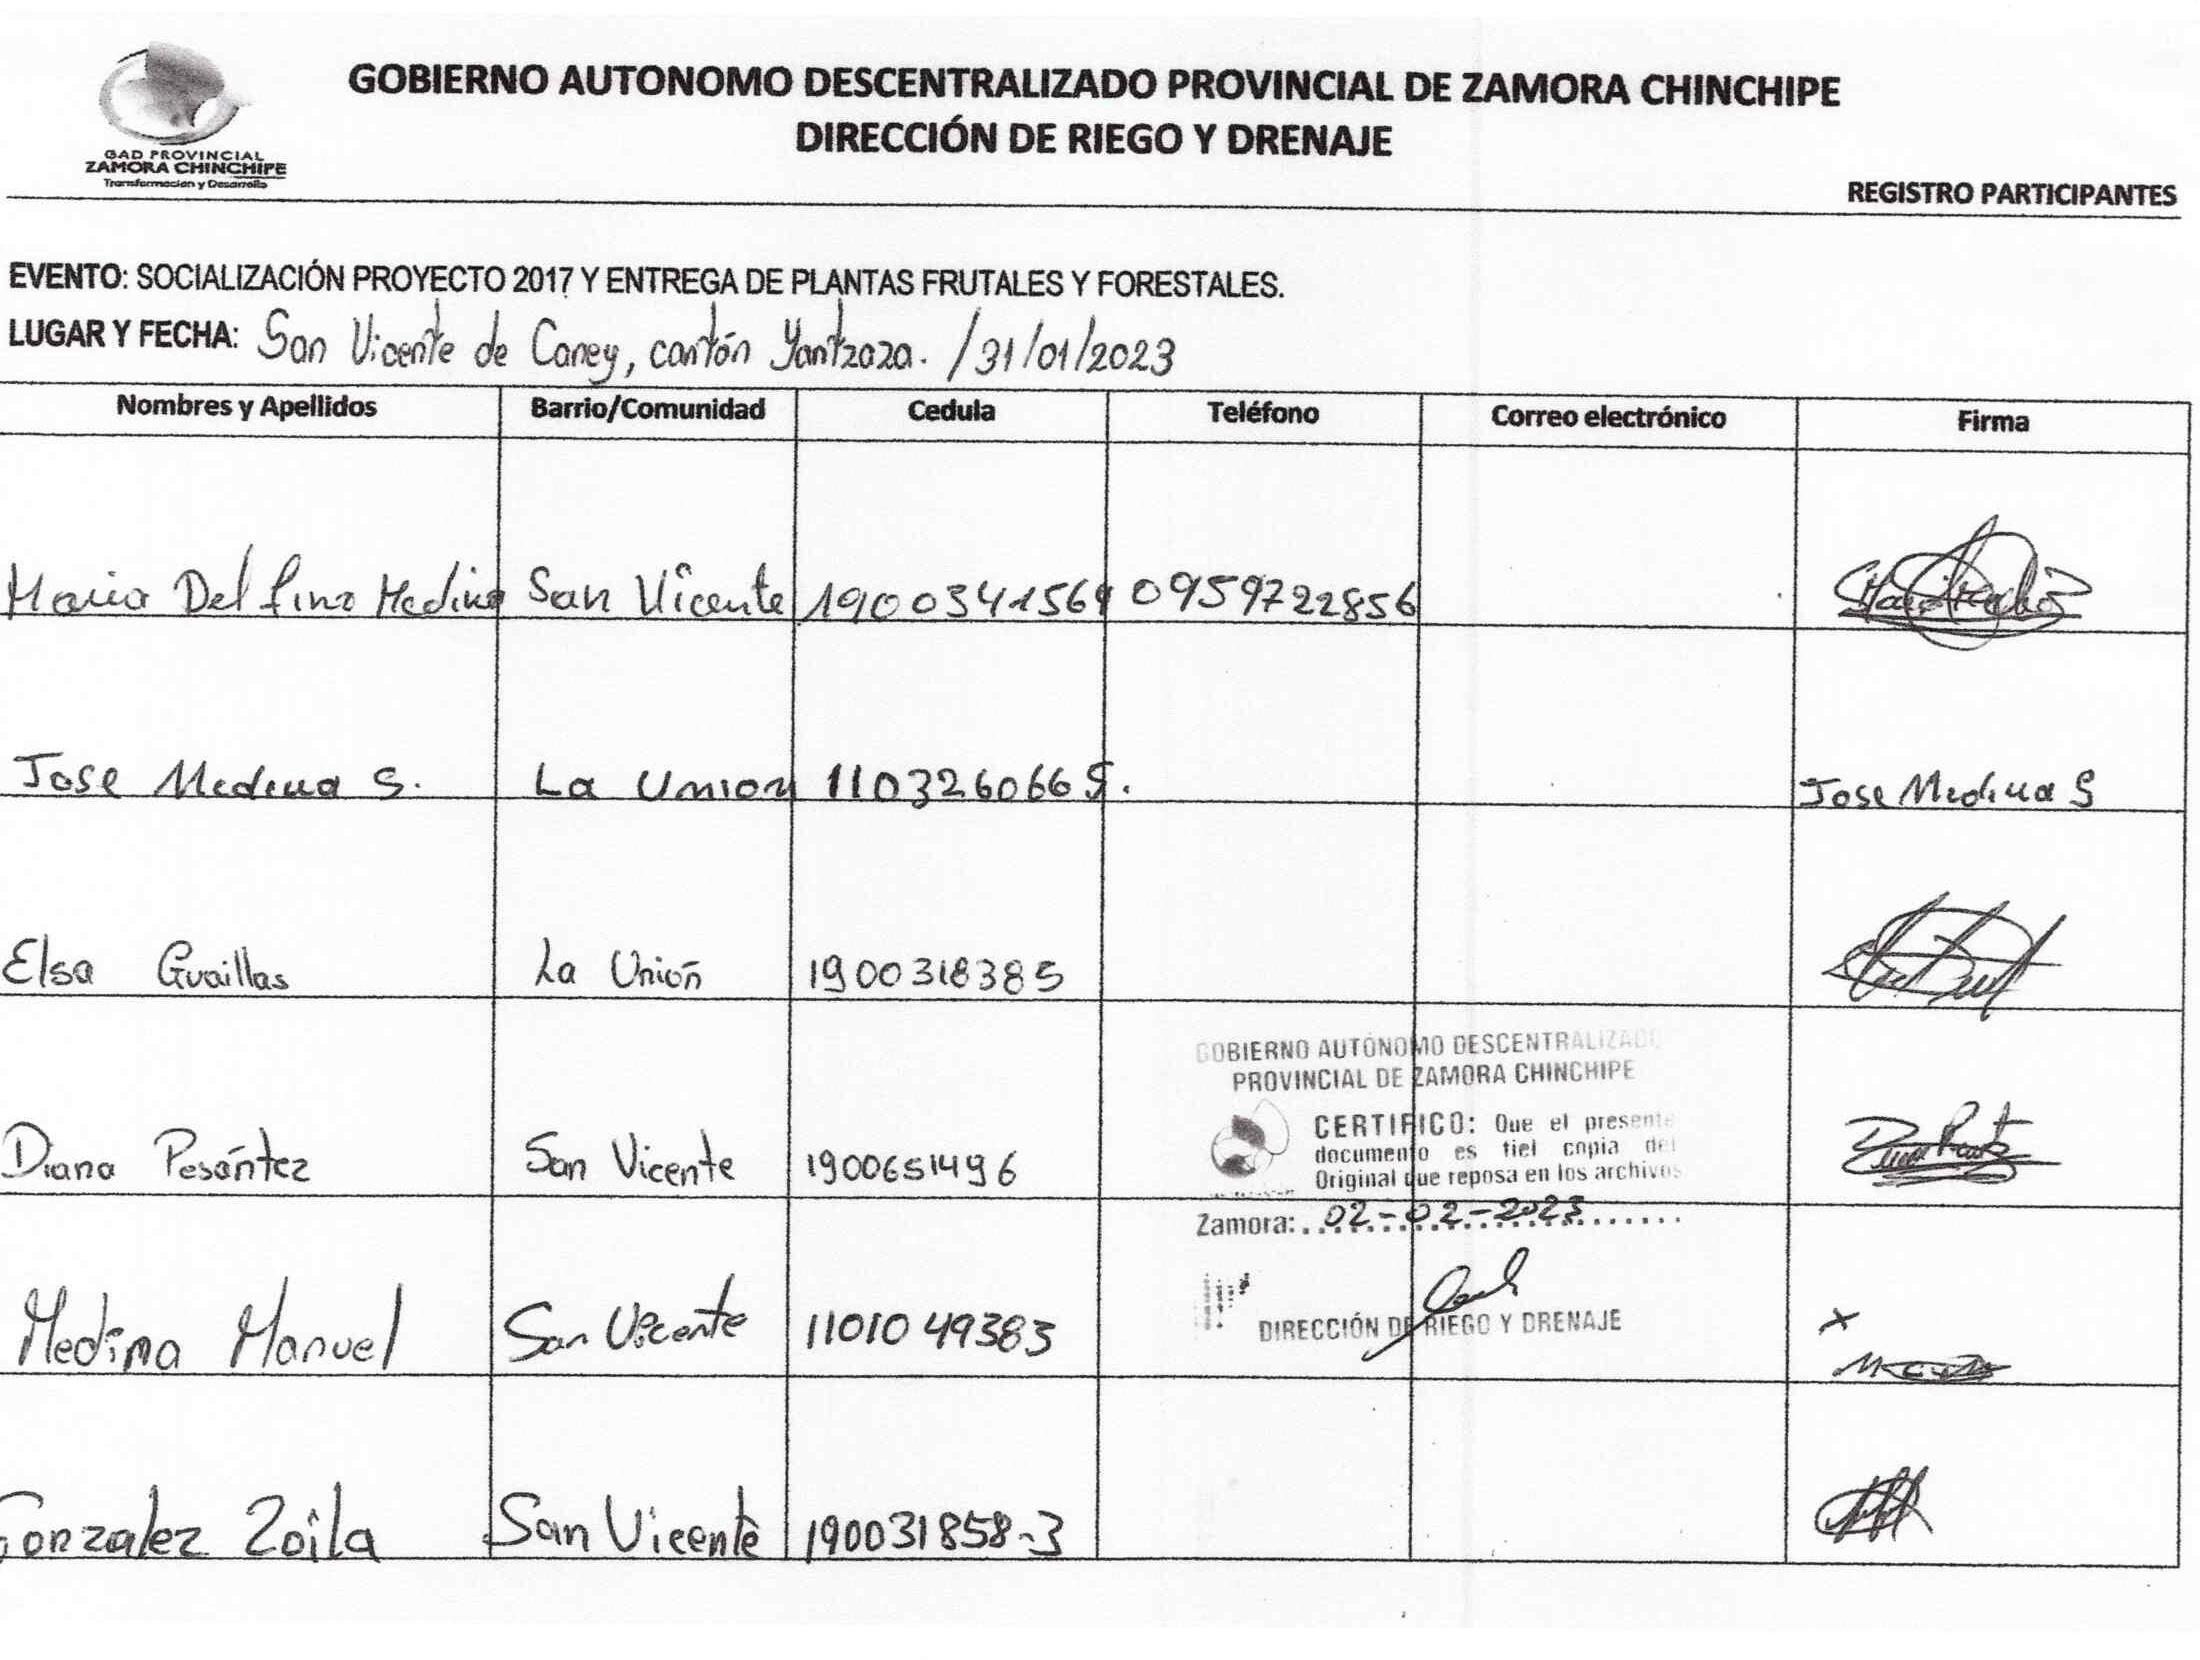 GAD PROVINCIAL
ZAMORA CHINCHIPE
Transformacion y Desarrollo
GOBIERNO AUTONOMO DESCENTRALIZADO PROVINCIAL DE ZAMORA CHINCHIPE
DIRECCIÓN DE RIEGO Y DRENAJE
REGISTRO PARTICIPANTES
EVENTO: SOCIALIZACIÓN PROYECTO 2017 Y ENTREGA DE PLANTAS FRUTALES Y FORESTALES.
LUGAR Y FECHA: San Vicente de Caney, cantón Yantzaza. /31/01/2023
Nombres y Apellidos Barrio/Comunidad Cedula Teléfono Correo electrónico Firma
Maria Delfina Medina San Vicente 1900341569 0959722856
Jose Medina S. La Union 1103260665. Jose Medina S
Elsa Guaillas La Unión 1900318385
GOBIERNO AUTÓNOMO DESCENTRALIZADO
PROVINCIAL DE ZAMORA CHINCHIPE
CERTIFICO: Que el presente
documento es fiel copia del
Original que reposa en los archivos
Diana Pesántez San Vicente 1900651496
Zamora: 02-02-2023
DIRECCIÓN DE RIEGO Y DRENAJE
Medina Manuel San Vicente 1101049383 x
Gonzalez Zoila San Vicente 190031858-3